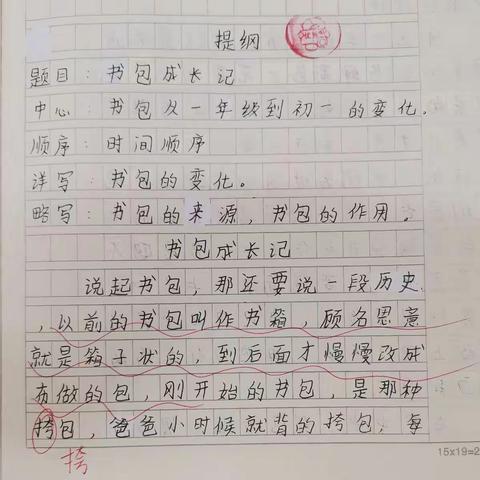 提纲
题目：书包成长记
中心：书包从一年级到初一的变化。
顺序：时间顺序
详写：书包的变化。
略写：书包的来源，书包的作用。
书包成长记
说起书包，那还要说一段历史
，以前的书包叫作书箱，顾名思意
就是箱子状的，到后面才慢慢改成
布做的包，刚开始的书包，是那种
挎包，爸爸小时候就背的挎包，每
挎
15x19=2